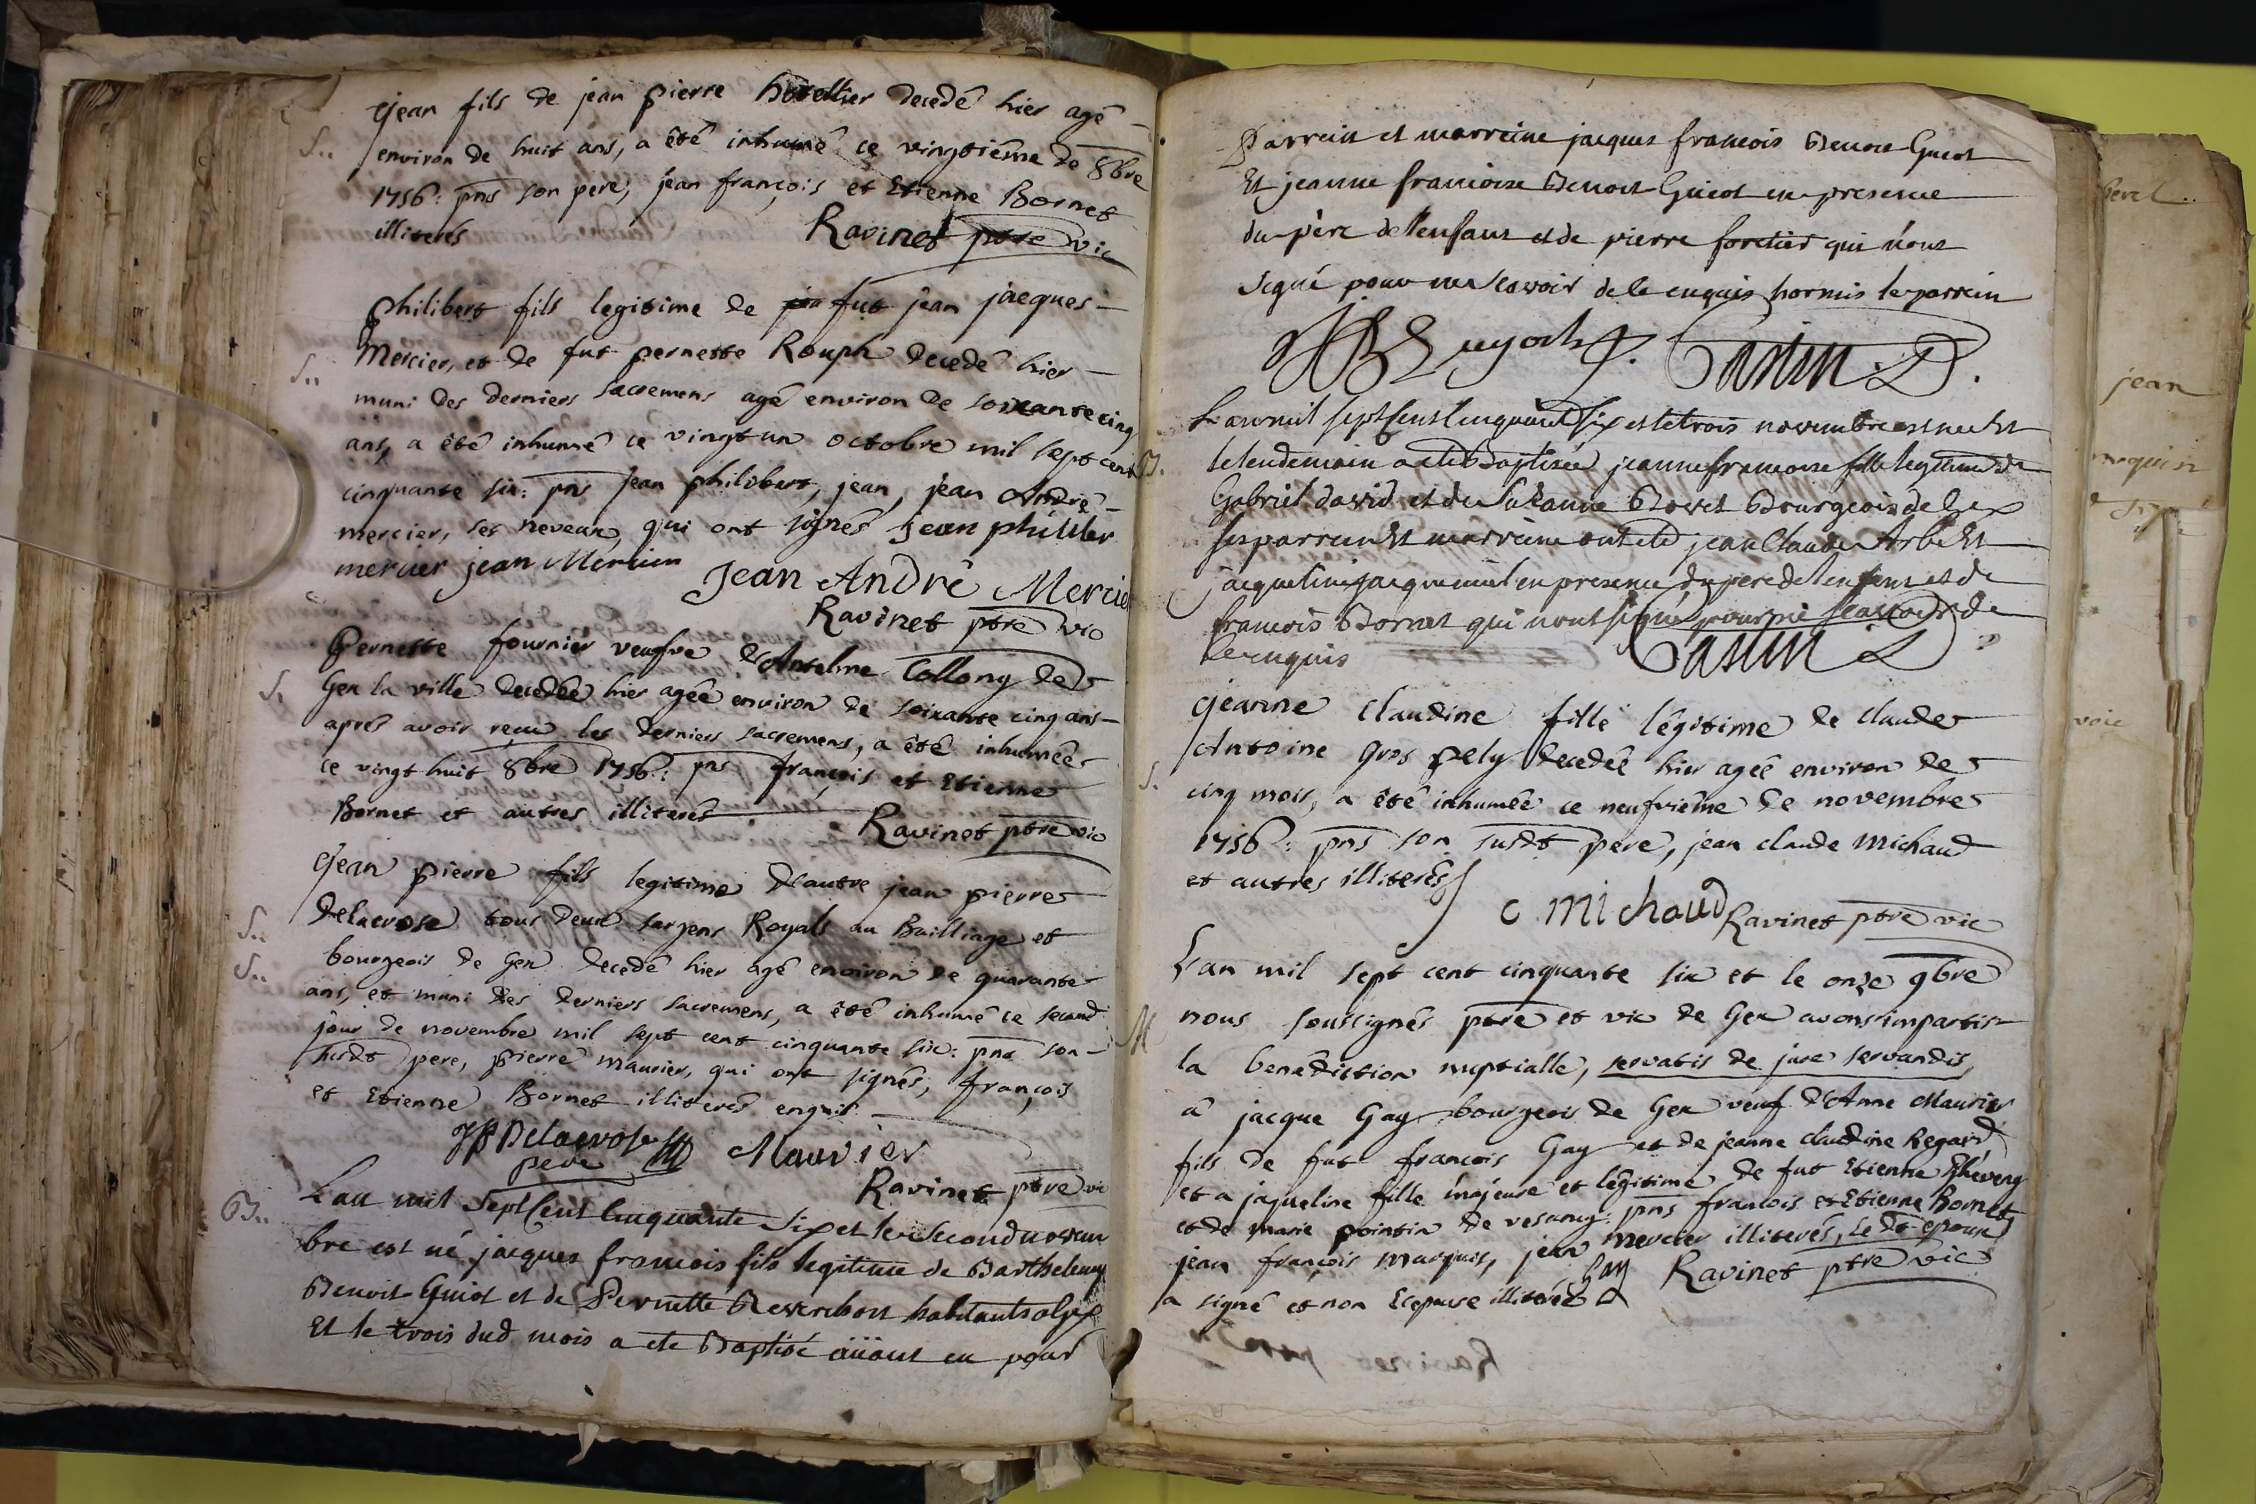 S..
jean fils de jean pierre decedé hier agé
environ de huit ans, a êté inhumé ce vingtiême de 8bre
1756: pns son pere, jean françois et Etienne Bornet
illiterés Ravinet ptre vic
S..
philibert fils legitime de fut jean jacques
Mercier, et de fut pernette Rouph decedé hier
muni des derniers sacremens agé environ de soixante cinq
ans, a êté inhumé ce vingt un octobre mil sept cent
cinquante six: pns jean philibert, jean, jean André
mercier, ses neveux, qui ont signés jean philiber
mercier jean Mercier Jean André Mercie
Ravinet ptre vic
S.
Pernette fournier veufve d'Antelme Collony de
Gex la ville decedée hier agée environ de soixante cinq ans
aprés avoir reçu les derniers sacremens, a êté inhumée
ce vingt huit 8bre 1756: pns françois et Etienne
Bornet et autres illiterés Ravinet ptre vic
S..
S..
Jean pierre fils legitime d'autre jean pierre
Delacrose tous deux sergens Royals au Bailliage et
bourgeois de Gex decedé hier agé environ de quarante
ans, et muni des derniers sacremens, a êté inhumé ce second
jour de novembre mil sept cent cinquante six: pns son
susdt pere, pierre maurier, qui ont signés, françois
et Etienne Bornet illiterés enquis
JP Delacrose pere Maurier
Ravinet ptre vic
B..
L'an mil sept Cent Cinquante Six et le Second novem
bre est né jacques francois fils legitime de Barthelemy
Benoit Guiot et de Pernette habitants a Gex
Et le trois dud mois a ete Baptisé aïiant eu pour
Parrein et marreine jacques francois Benoit Guiot
Et jeanne francoise Benoit Guiot en presence
du père de l'enfant et de pierre foretier qui n'ont
Signé pour ne Scavoir de ce enquis hormis le parrein
Castin
B.
L'an mil sept Cent Cinquante Six et le trois novembre est née Et
le lendemain a eté Baptisée jeanne francoise fille legitime de
Gabriel david et de Suzanne Bovet Bourgeois de Gex
ses parrein Et marreine ont eté jean Claude Arbe Et
jacqueline en presence du pere de l'enfant et de
francois Bornet qui n'ont signé pour ne scavoir de
ce enquis Castin
S.
Jeanne Claudine fille légitime de claude
Antoine gros pely decedée hier agée environ de
cinq mois, a êté inhumée ce neufviême de novembre
1756: pns son susdt pere, jean claude Michaud
et autres illiterés
c michaud Ravinet ptre vic
M
L'an mil sept cent cinquante six et le onze 9bre
nous soussignés ptre et vic de Gex avons impartis
la benédiction nuptialle, servatis de jure servandis,
â jacque Gay bourgeois de Gex veuf d'Anne Maurier
fils de fut francois Gay et de jeanne claudine Regard
et a jaqueline fille majeure et légitime de fut Etienne
et de marie pointin de vesancy: pns francois et Etienne Bornet
jean françois marquis, jean mercier illiterés, le dt epoux
a signé et non L'epouse illiterée Gay Ravinet ptre vic
jean
voie